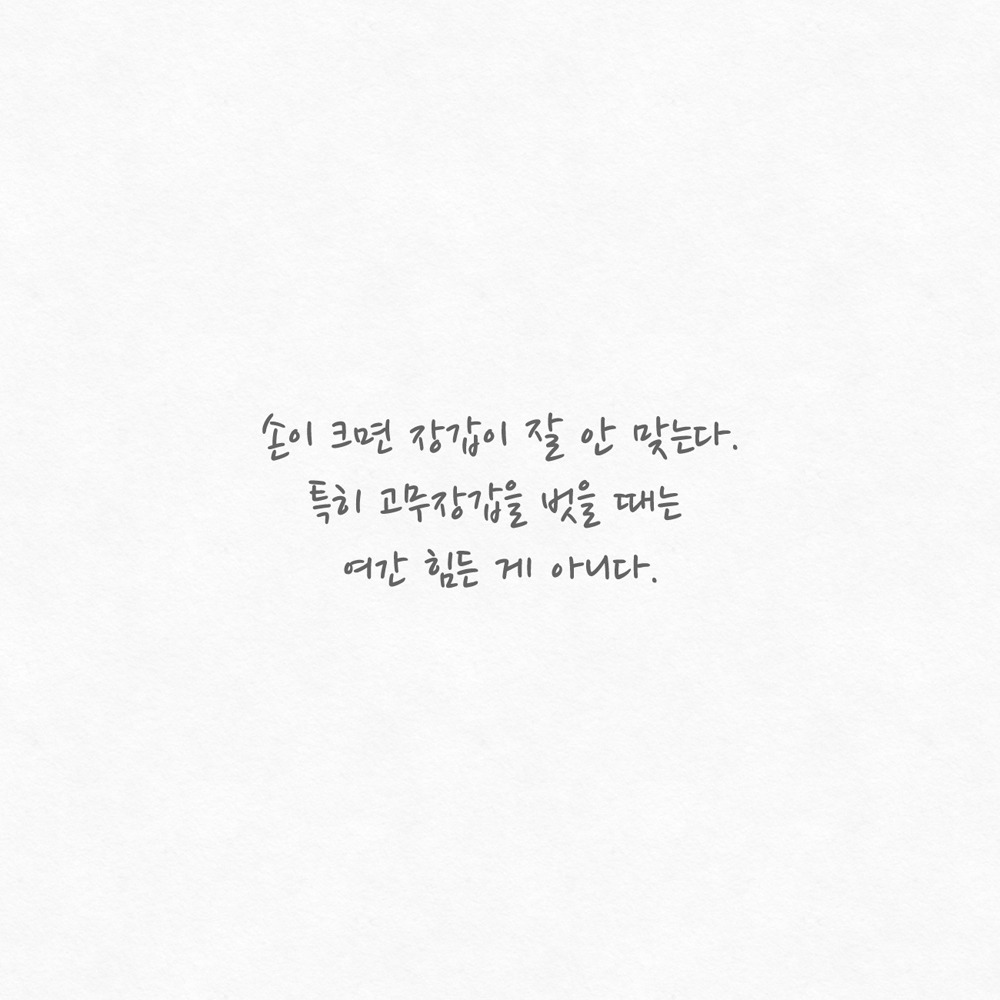 손이 크면 장갑이 잘 안 맞는다.
특히 고무장갑을 벗을 때는
여간 힘든 게 아니다.